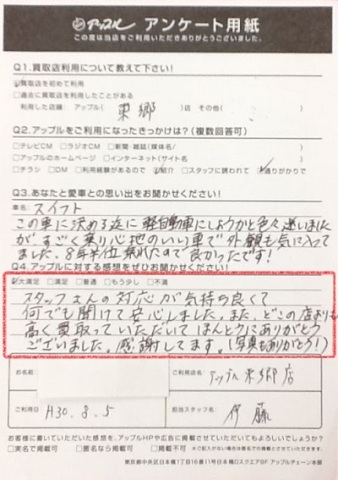 アップル アンケート用紙
この度は当店をご利用いただきありがとうございました。
Q1.買取店利用について教えて下さい!
☑買取店を初めて利用
□過去に買取店を利用したことがある
利用した店舗: アップル( 東郷 )店 その他( )
Q2.アップルをご利用になったきっかけは?(複数回答可)
□テレビCM □ラジオCM □新聞・雑誌(媒体名/ )
□アップルのホームページ □インターネット(サイト名/ )
□チラシ □DM □利用経験があるので ☑紹介 □スタッフに誘われて ☑通りがかりで
Q3.あなたと愛車との思い出をお聞かせください!
車名: スイフト
この車に決める迄に軽自動車にしようかと色々迷いました
が、すごく乗り心地のいい車で外観も気に入って
ました。8年半位乗れたので良かったです!
Q4.アップルに対する感想をぜひお聞かせください!
☑大満足 □満足 □普通 □もう少し □不満
スタッフさんの対応が気持ち良くて
何でも聞けて安心しました。また、どこの店よりも
高く買取っていただいてほんとうにありがとう
ございました。感謝してます。(写真もありがとう!)
お名前
ご利用店名 アップル東郷店
ご利用日 H30.8.5
担当スタッフ名 伊藤
お客様に書いていただいた感想を、アップルHPや広告に掲載させていただいてもよろしいでしょうか?
□実名で掲載可 □匿名なら掲載可 □掲載不可
東京都中央区日本橋1丁目16番11号日本橋ロスクエア8F アップルチェーン本部